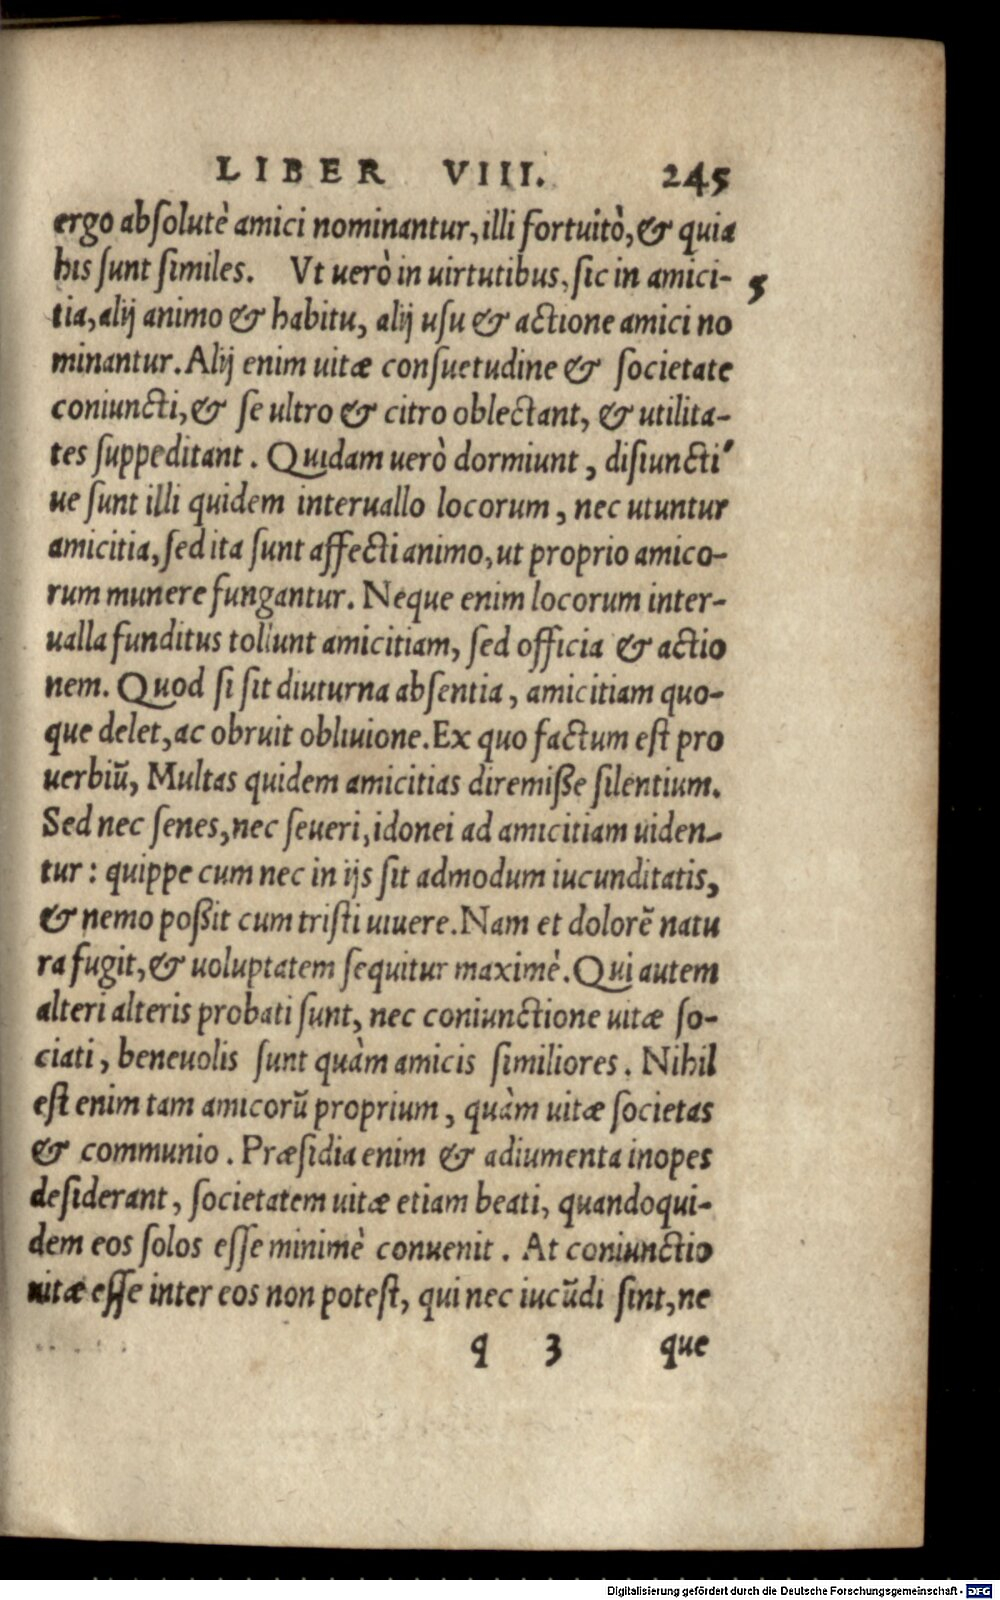 LIBER VIII. 245
ergo abſolutè amici nominantur, illi fortuitò, & quia
his ſunt ſimiles. Vt uerò in uirtutibus, ſic in amici-
5
tia, alij animo & habitu, alij uſu & actione amici no
minantur. Alij enim uitæ conſuetudine & ſocietate
coniuncti, & ſe ultro & citro oblectant, & utilita-
tes ſuppeditant. Quidam uerò dormiunt, diſiuncti'
ue ſunt illi quidem interuallo locorum, nec utuntur
amicitia, ſed ita ſunt affecti animo, ut proprio amico-
rum munere fungantur. Neque enim locorum inter-
ualla funditus tollunt amicitiam, ſed officia & actio
nem. Quod ſi ſit diuturna abſentia, amicitiam quo-
que delet, ac obruit obliuione. Ex quo factum eſt pro
uerbiũ, Multas quidem amicitias diremiſſe ſilentium.
Sed nec ſenes, nec ſeueri, idonei ad amicitiam uiden-
tur: quippe cum nec in ijs ſit admodum iucunditatis,
& nemo poßit cum triſti uiuere. Nam et dolorẽ natu
ra fugit, & uoluptatem ſequitur maximè. Qui autem
alteri alteris probati ſunt, nec coniunctione uitæ ſo-
ciati, beneuolis ſunt quàm amicis ſimiliores. Nihil
eſt enim tam amicorũ proprium, quàm uitæ ſocietas
& communio. Præſidia enim & adiumenta inopes
deſiderant, ſocietatem uitæ etiam beati, quandoqui-
dem eos ſolos eſſe minimè conuenit. At coniunctio
uitæ eſſe inter eos non poteſt, qui nec iucũdi ſint, ne
q 3 que
Digitalisierung gefördert durch die Deutsche Forschungsgemeinschaft - DFG